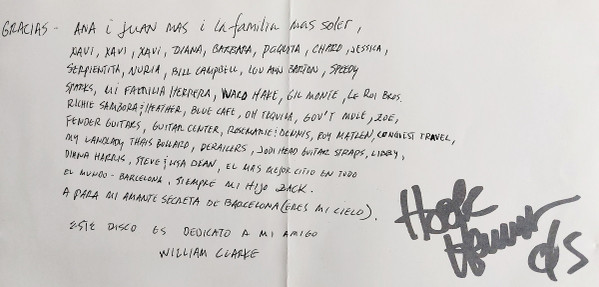 GRACIAS - ANA i JUAN MAS i LA familia MAS SOLER,
XAVI, XAVI, XAVI, DIANA, BARBARA, PAQUITA, CHARO, JESSICA,
SERPIENTITA, NURIA, BILL CAMPBELL, LOU ANN BARTON, SPEEDY
SPARKS, MI FAMILIA HERRERA, WALD HAKE, GIL MONTE, LE ROI BROS.
RICHIE SAMBORA & HEATHER, BLUE CAFE, OH TEQUILA, GOV'T MULE, ZOE,
FENDER GUITARS, GUITAR CENTER, ROSEMARIE & DENNIS, ROY MATTEN, CONQUEST TRAVEL,
MY LANDLADY THAIS BULLARD, DERAILERS, JODI HEAD GUITAR STRAPS, LIBBY,
DIANA HARRIS, STEVE & LISA DEAN, EL MAS MEJOR CITIO EN TODO
EL MUNDO - BARCELONA, SIEMPRE MI HIJO ZACK.
A PARA MI AMANTE SECRETA DE BARCELONA (ERES MI CIELO).
ESTE DISCO ES DEDICATO A MI AMIGO
WILLIAM CLARKE